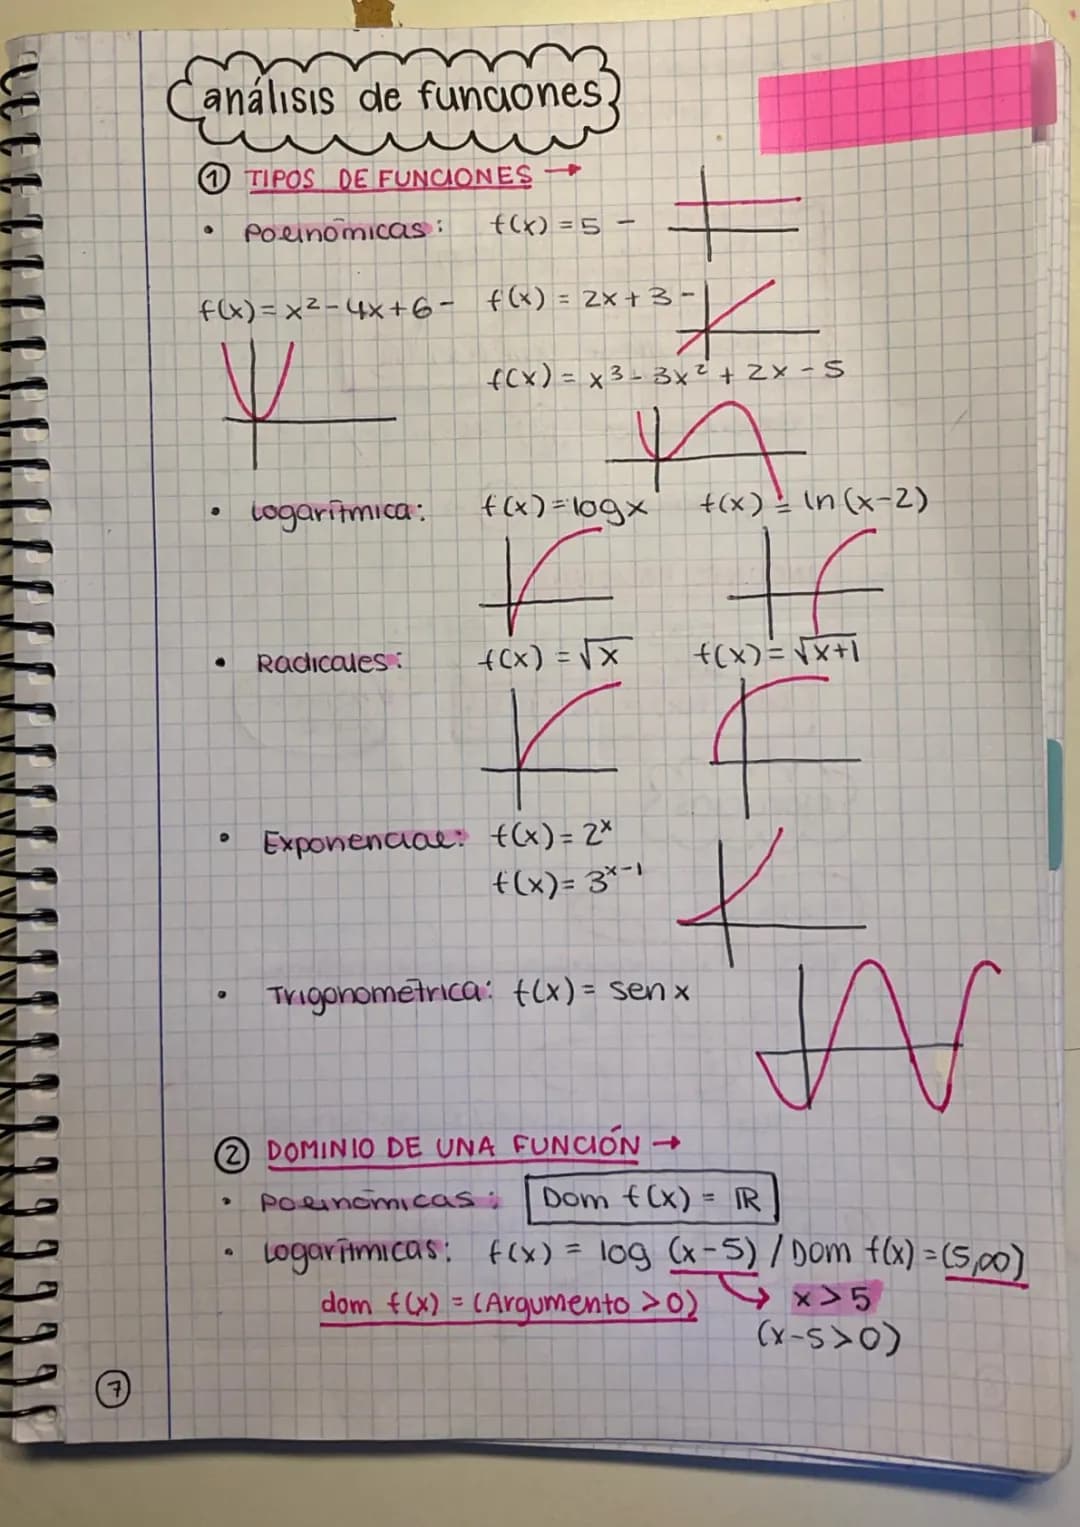 análisis de funciones
① TIPOS DE FUNCIONES →
• Polinómicas: f(x) = 5 -
f(x) = x² - 4x + 6 - f(x) = 2x + 3 -
f(x) = x³ - 3x² + 2x - 5
• Logarítmica: f(x) = log x f(x) = ln (x-2)
• Radicales: f(x) = √x f(x) = √x+1
• Exponencial: f(x) = 2ˣ
f(x) = 3ˣ⁻¹
• Trigonométrica: f(x) = sen x
② DOMINIO DE UNA FUNCIÓN →
• Polinómicas: Dom f(x) = ℝ
• Logarítmicas: f(x) = log (x-5) / Dom f(x) = (5,∞)
dom f(x) = (Argumento > 0) → x > 5
(x-5>0)
⑦